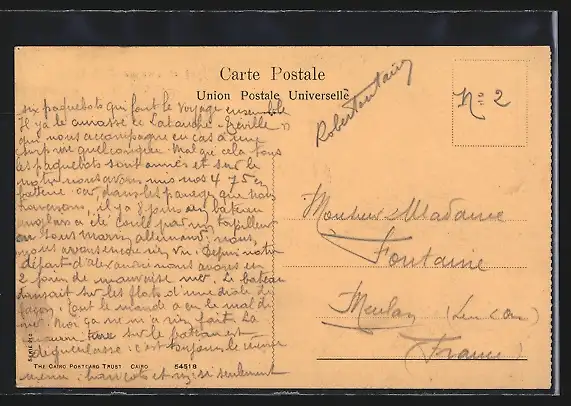 Carte Postale
Union Postale Universelle
Nº 2
six paquebots qui font le voyage ensemble
Il y a le cuirassé le Latouche-Tréville
qui nous accompagne en cas d'une
surprise quelconque. Malgré cela tous
les paquebots sont armés et sur le
notre nous avons mis nos 4 75 en
batterie car dans les parages que nous
traversons, il y a 8 jours un bateau
anglais a été coulé par un torpilleur
ou sous marin allemand, nous,
nous avons encore rien vu. Depuis notre
départ d'alexandrie nous avons eu
2 jours de mauvaise mer. Le bateau
dansait sur les flots d'une drole de
façon. Tout le monde a eu le mal de
mer. Moi ça ne m'a rien fait. La
sur le bateau est
dégueulasse: c'est toujours le même
menu: haricots et riz si seulement
Monsieur Madame
Fontaine
Meulan
(France)
SERIE
THE CAIRO POSTCARD TRUST CAIRO 54518